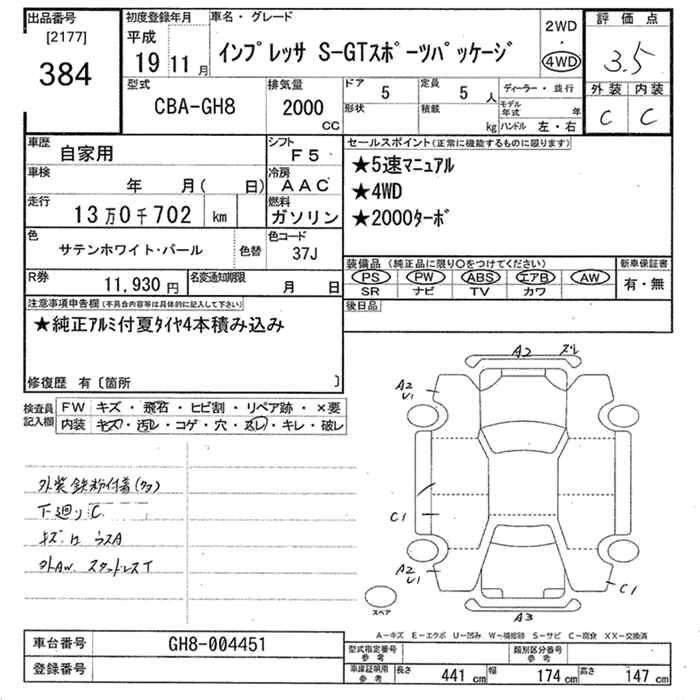 出品番号 初度登録年月 車名・グレード 2WD 評価点
[2177] 平成 ・
384 19 11月 インプレッサ S-GTスポーツパッケージ 4WD 3.5
型式 排気量 ドア 5 定員 5人 ディーラー・並行 外装 内装
CBA-GH8 2000 CC 形状 積載 kg モデル年式 年 C C
ハンドル 左・右
車歴 自家用 シフト F5 セールスポイント(正常に機能するものに限ります)
車検 年 月( 日) 冷房 AAC ★5速マニュアル
走行 13万0千702 km 燃料 ガソリン ★4WD
★2000ターボ
色 サテンホワイト・パール 色替 色コード 37J
装備品 (純正品に限り○をつけてください) 新車保証書
R券 11,930円 名変通知期限 月 日 PS PW ABS エアB AW 有・無
SR ナビ TV カワ
注意事項申告欄(不具合内容等は具体的に記入して下さい) 後日品
★純正アルミ付夏タイヤ4本積み込み
修復歴 有〔箇所 〕
検査員記入欄 FW キズ・飛石・ヒビ割・リペア跡・×要
内装 キズ・汚レ・コゲ・穴・スレ・キレ・破レ
A2 ズレ
A2
U1
外装鉄粉付着(タク)
下廻りC
キズ・凹 ウスA
外AW. スタッドレスT
C1
A2
U1
C1
スペア
A3
A-キズ E-エクボ U-凹み W-補修跡 S-サビ C-腐食 XX-交換済
車台番号 GH8-004451 型式指定番号 参考 類別区分番号 参考
登録番号 車庫証明用 参考 長さ 441cm 幅 174cm 高さ 147cm